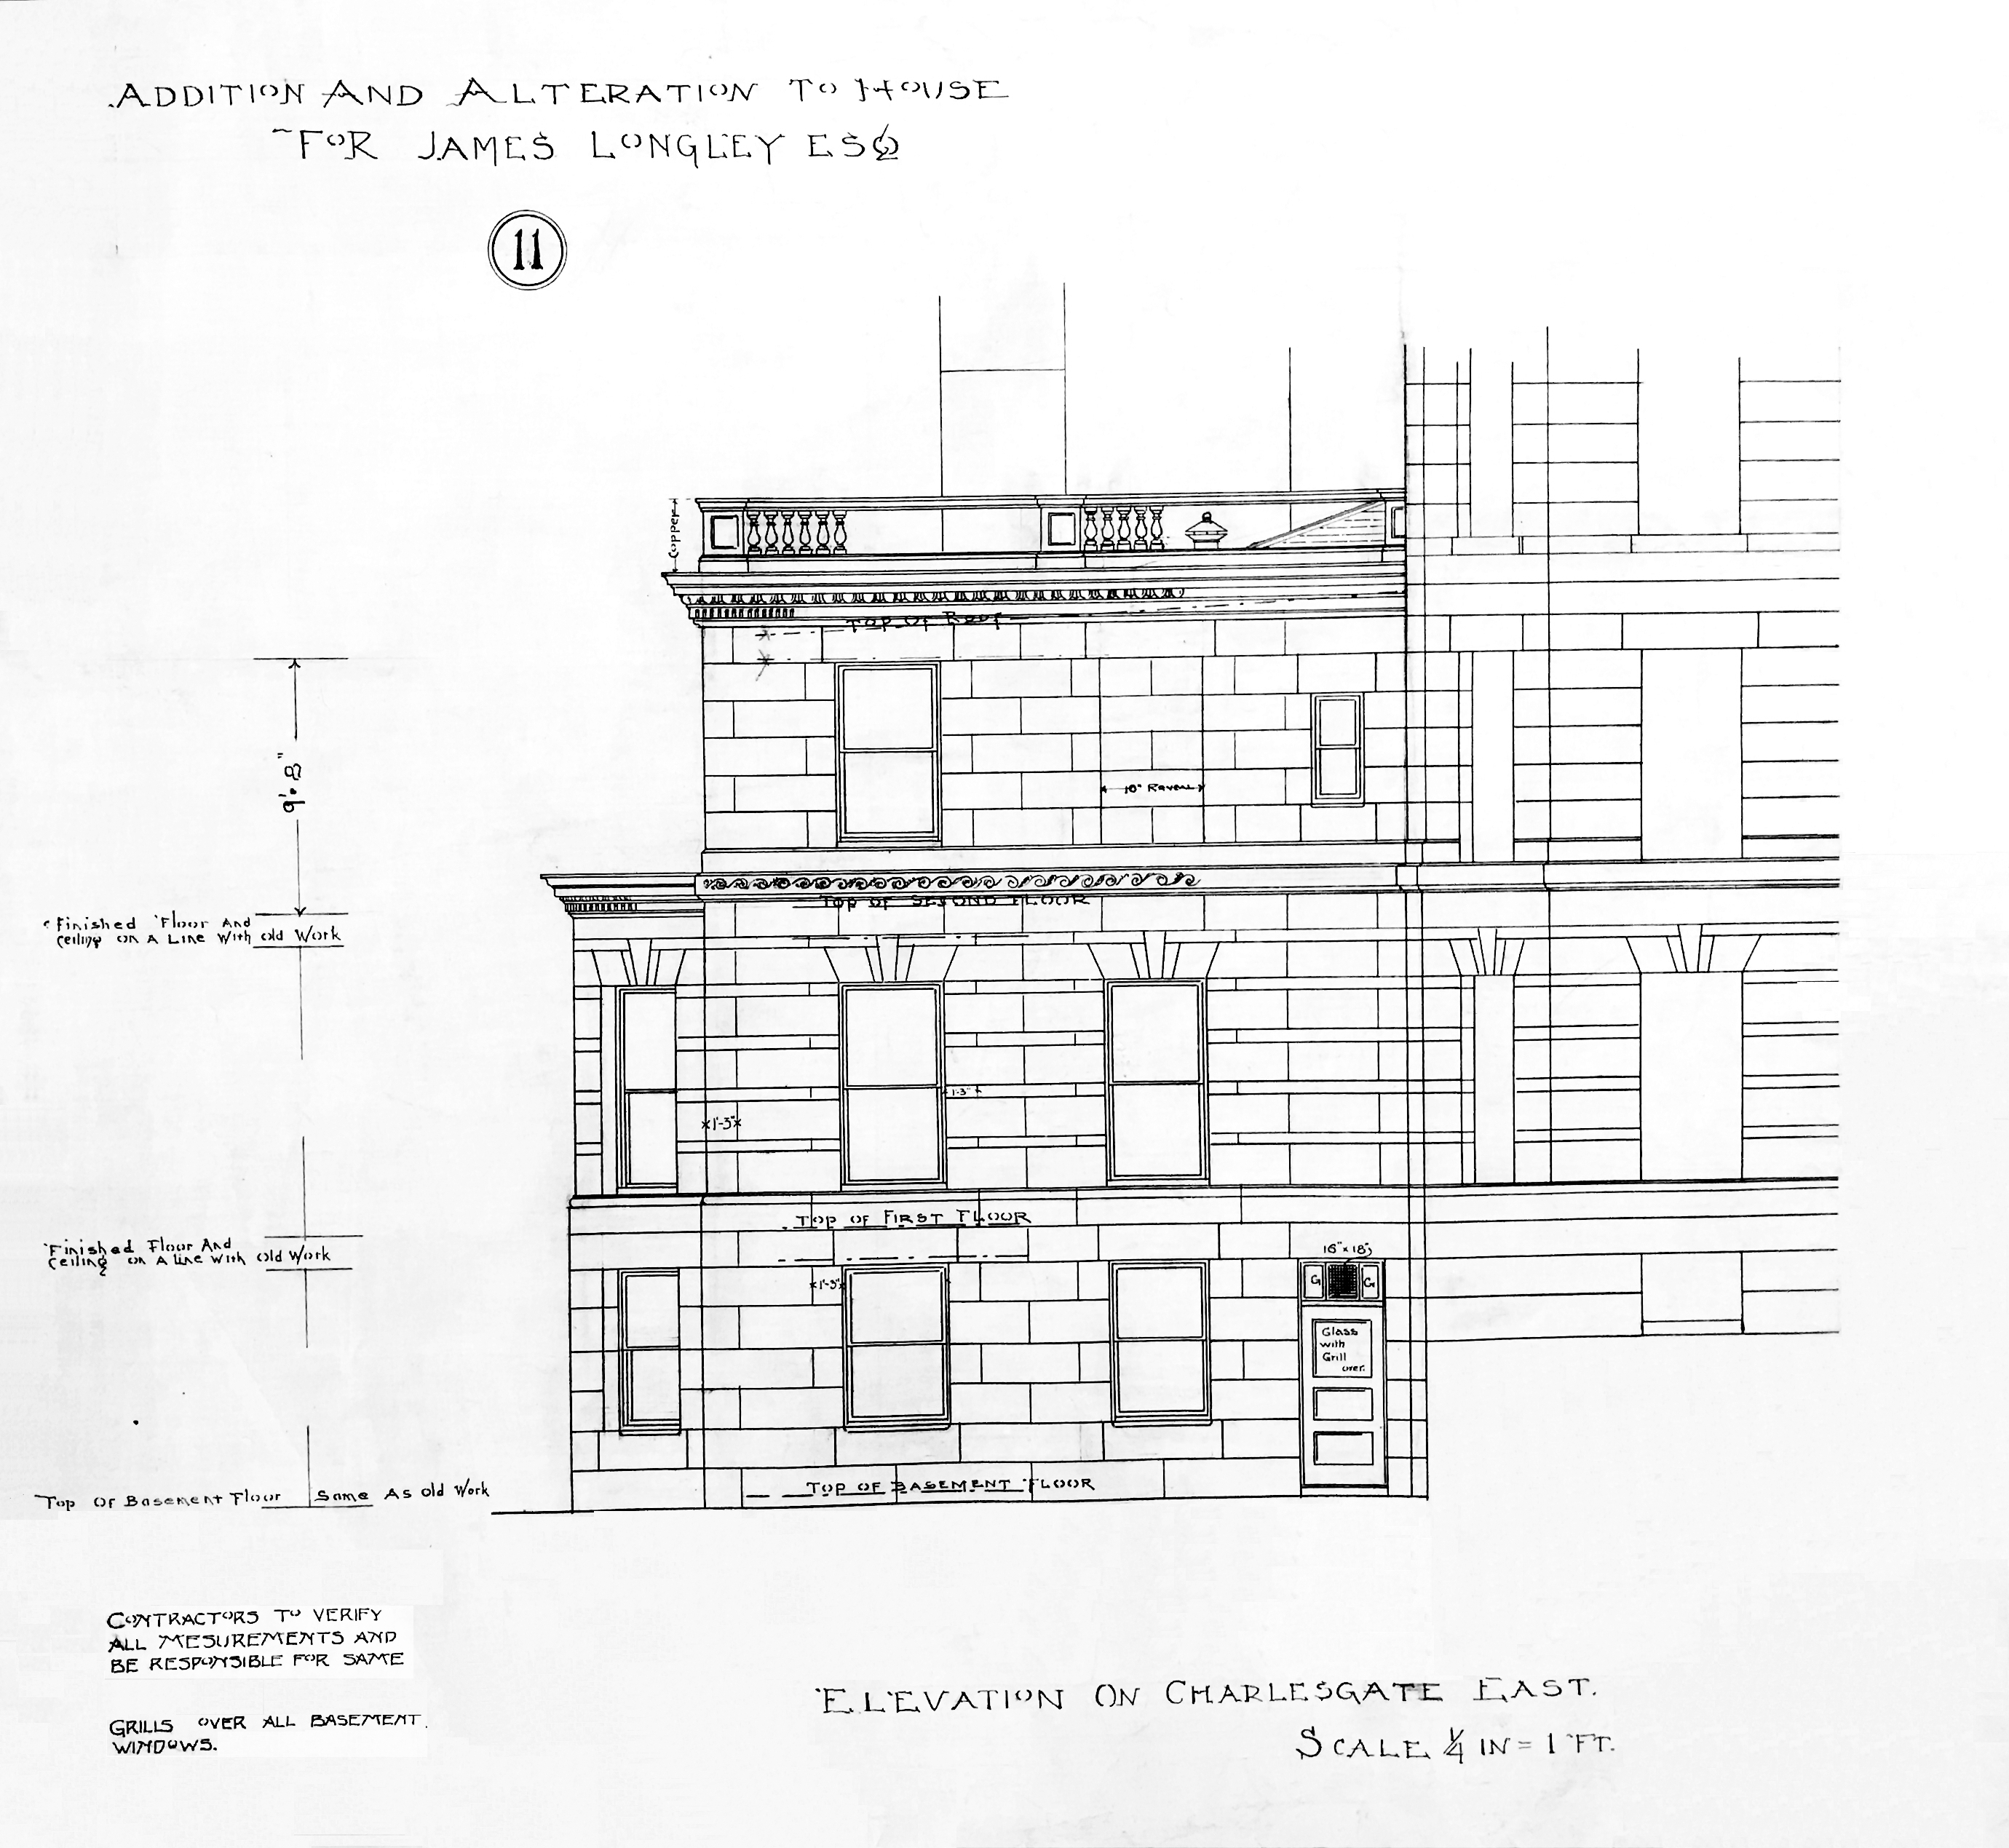 ADDITION AND ALTERATION TO HOUSE
FOR JAMES LONGLEY ESQ
11
Copper
TOP OF ROOF
9'.8"
10" Reveal
Finished Floor And
Ceiling on A Line With old Work
TOP OF SECOND FLOOR
1'-3"
1'-3"
TOP OF FIRST FLOOR
Finished Floor And
Ceiling on A Line With Old Work
16" x 18"
1'-3"
G G
Glass
with
Grill
over.
TOP OF BASEMENT FLOOR
Top Of Basement Floor Same As Old Work
CONTRACTORS TO VERIFY
ALL MESUREMENTS AND
BE RESPONSIBLE FOR SAME
GRILLS OVER ALL BASEMENT
WINDOWS.
ELEVATION ON CHARLESGATE EAST.
SCALE ¼ IN = 1 FT.